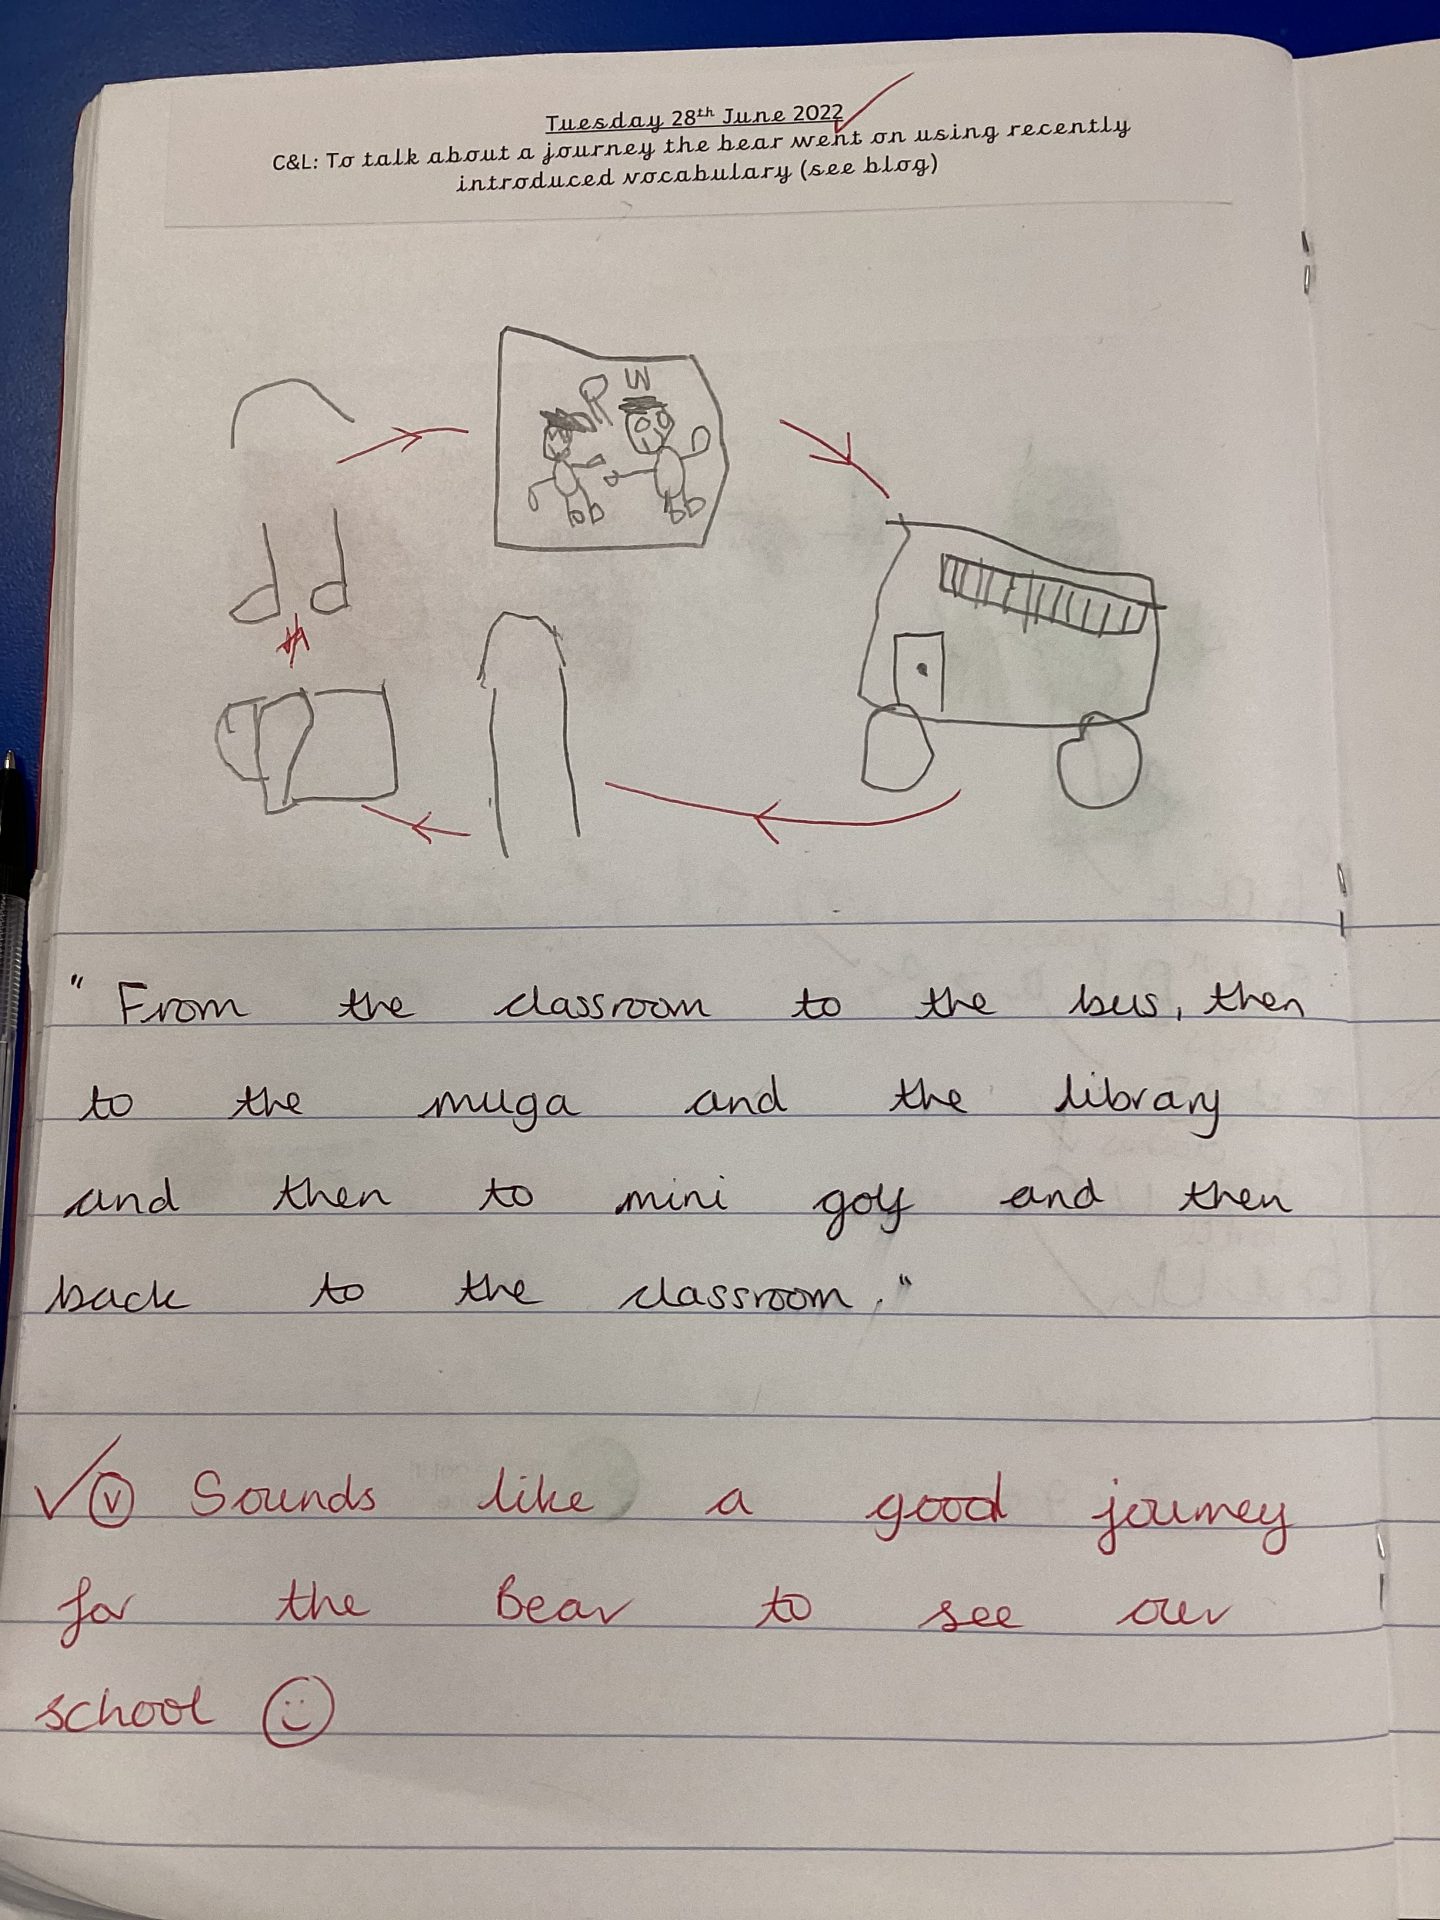 Tuesday 28th June 2022
C&L: To talk about a journey the bear went on using recently
introduced vocabulary (see blog)
R W
" From the classroom to the bus, then
to the muga and the library
and then to mini golf and then
back to the classroom."
✓ Ⓥ Sounds like a good journey
for the bear to see our
school ☺